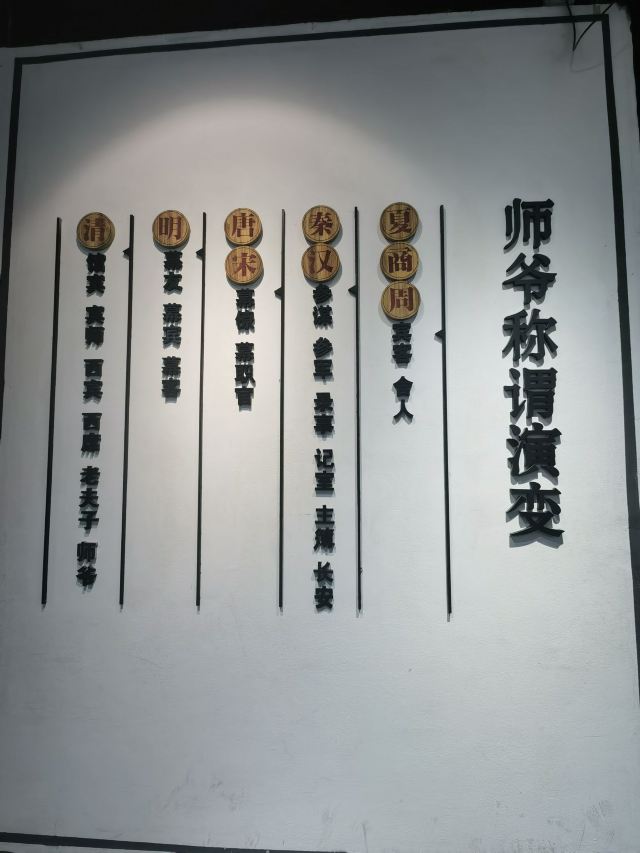 师爷称谓演变
夏商周 宾客 舍人
秦汉 参谋 参军 记室 主簿 长安
唐宋 幕僚 幕职官
明 幕友 幕宾 幕客
清 宾师 西宾 西席 老夫子 师爷